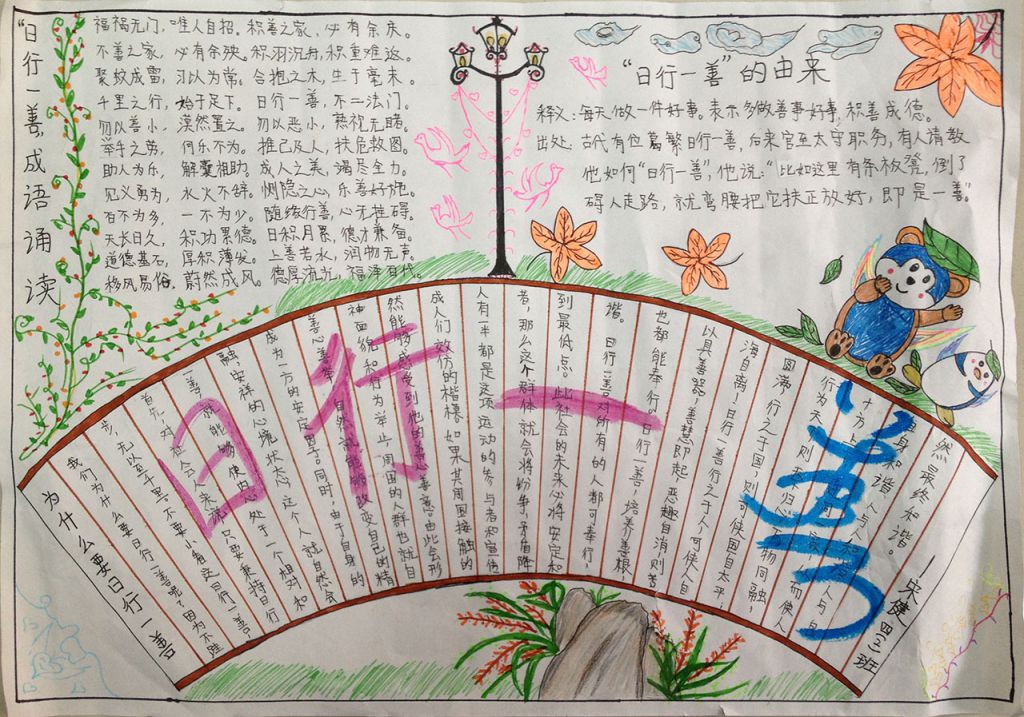 "日行一善，成语诵读
福祸无门，唯人自招。积善之家，必有余庆。
不善之家，必有余殃。积羽沉舟，积重难返。
聚蚊成雷，习以为常。合抱之木，生于毫末。
千里之行，始于足下。日行一善，不二法门。
勿以善小，漠然置之。勿以恶小，熟视无睹。
举手之劳，何乐不为。推己及人，扶危救困。
助人为乐，解囊相助。成人之美，竭尽全力。
见义勇为，水火不辞。恻隐之心，乐善好施。
百不为多，一不为少。随缘行善，心无挂碍。
天长日久，积功累德。日积月累，德才兼备。
道德基石，厚积薄发。上善若水，润物无声。
移风易俗，蔚然成风。德厚流光，福泽百代。
"日行一善"的由来
释义：每天做一件好事。表示多做善事好事，积善成德。
出处：古代有位葛繁日行一善，后来官至太守职务，有人请教
他如何"日行一善"，他说："比如这里有条板凳，倒了
碍人走路，就弯腰把它扶正放好，即是一善"。
日行一善
为什么要日行一善
我们为什么要日行一善呢？因为不跬
步，无以至千里。不要小看这日行一善，
首先，对社会来说，只要秉持日行
一善，就能够使内心处于一个相对和
融、安祥的心境状态，这个人就自然会
成为一方的安定因子。同时，由于自身的
善心善举，自然就能够改变自己的精
神面貌和行为举止，周围的人群也就自
然能够感受到他的善意。由此会形
成人们效仿的楷模。如果其周围接触的
人有一半都是这项运动的参与者和宣传
者，那么这个群体就会将纷争、矛盾降
到最低点。此社会的未来必将安定和
谐。日行一善对所有的人都可奉行，
也都能奉行。日行一善，培养善根，
以具善器。善慧即起，恶趣自消，则苦
海自离！日行一善行之于人，可使人自
圆满，行之于国，则可使国百太平；
行为天下则天下归心，万物同融，
十方上而使人
自身和谐，人与人和谐，人与自
然最终和谐。
宋健 四(三)班